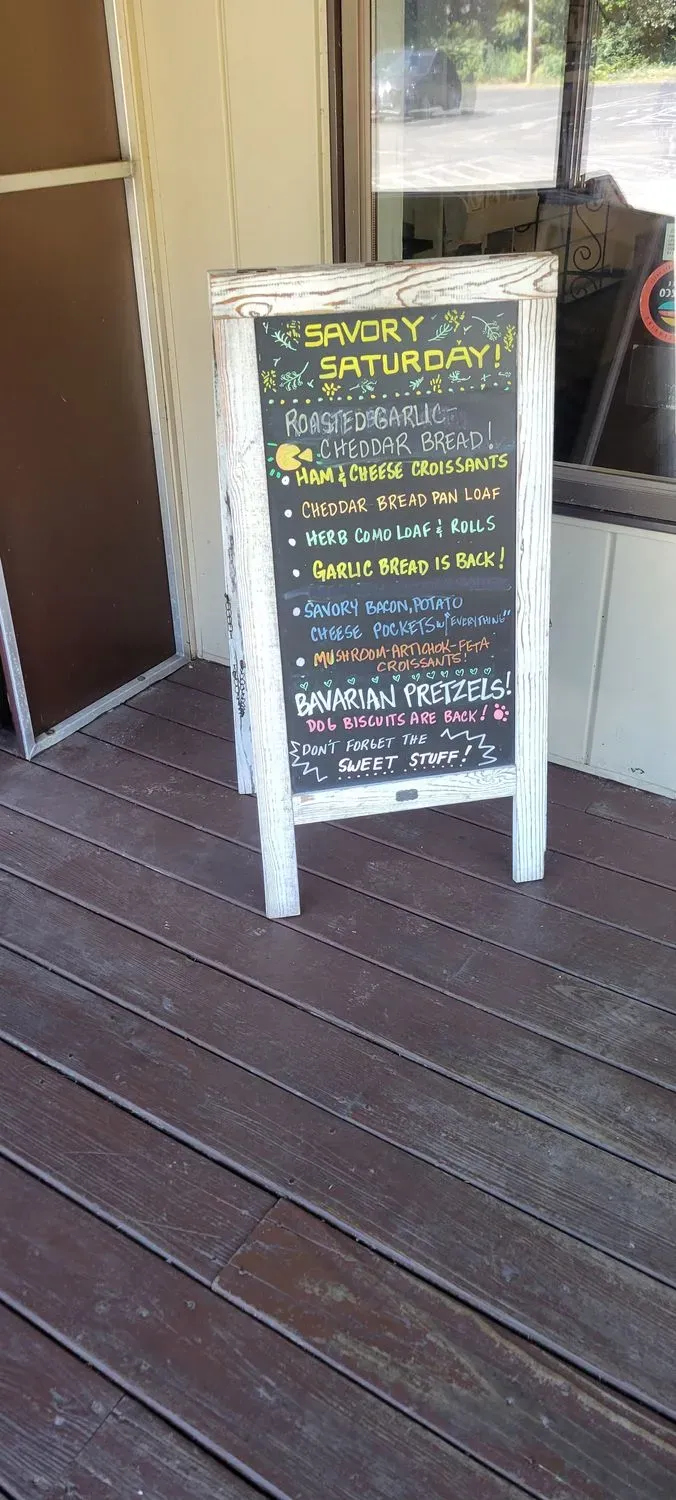 SAVORY
SATURDAY!
ROASTED GARLIC-
CHEDDAR BREAD!
HAM & CHEESE CROISSANTS
CHEDDAR BREAD PAN LOAF
HERB COMO LOAF & ROLLS
GARLIC BREAD IS BACK!
SAVORY BACON, POTATO
CHEESE POCKETS W/ "EVERYTHING"
MUSHROOM-ARTICHOK-FETA
CROISSANTS!
BAVARIAN PRETZELS!
DOG BISCUITS ARE BACK!
DON'T FORGET THE
SWEET STUFF!